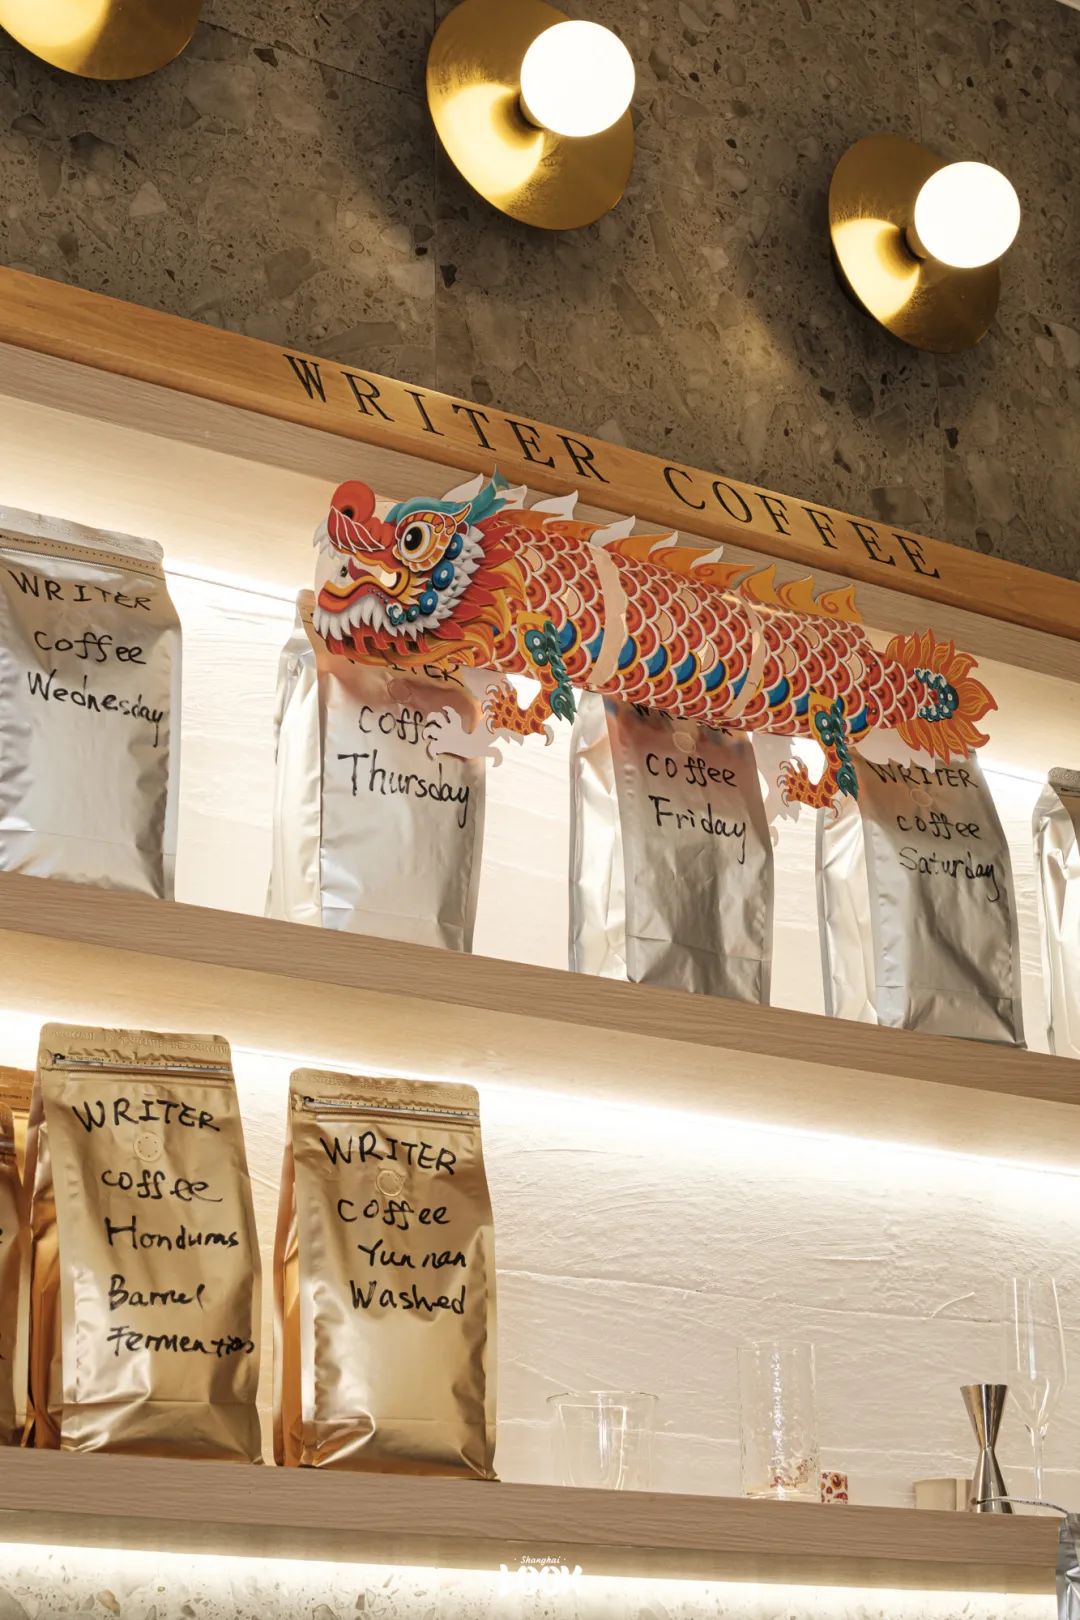 WRITER COFFEE
WRITER
Coffee
Wednesday
WRITER
Coffe
Thursday
WRITER
Coffee
Friday
WRITER
coffee
Saturday
WRITER
coffee
Honduras
Barrel
Fermentation
WRITER
Coffee
Yunnan
Washed
· Shanghai ·
LOOK